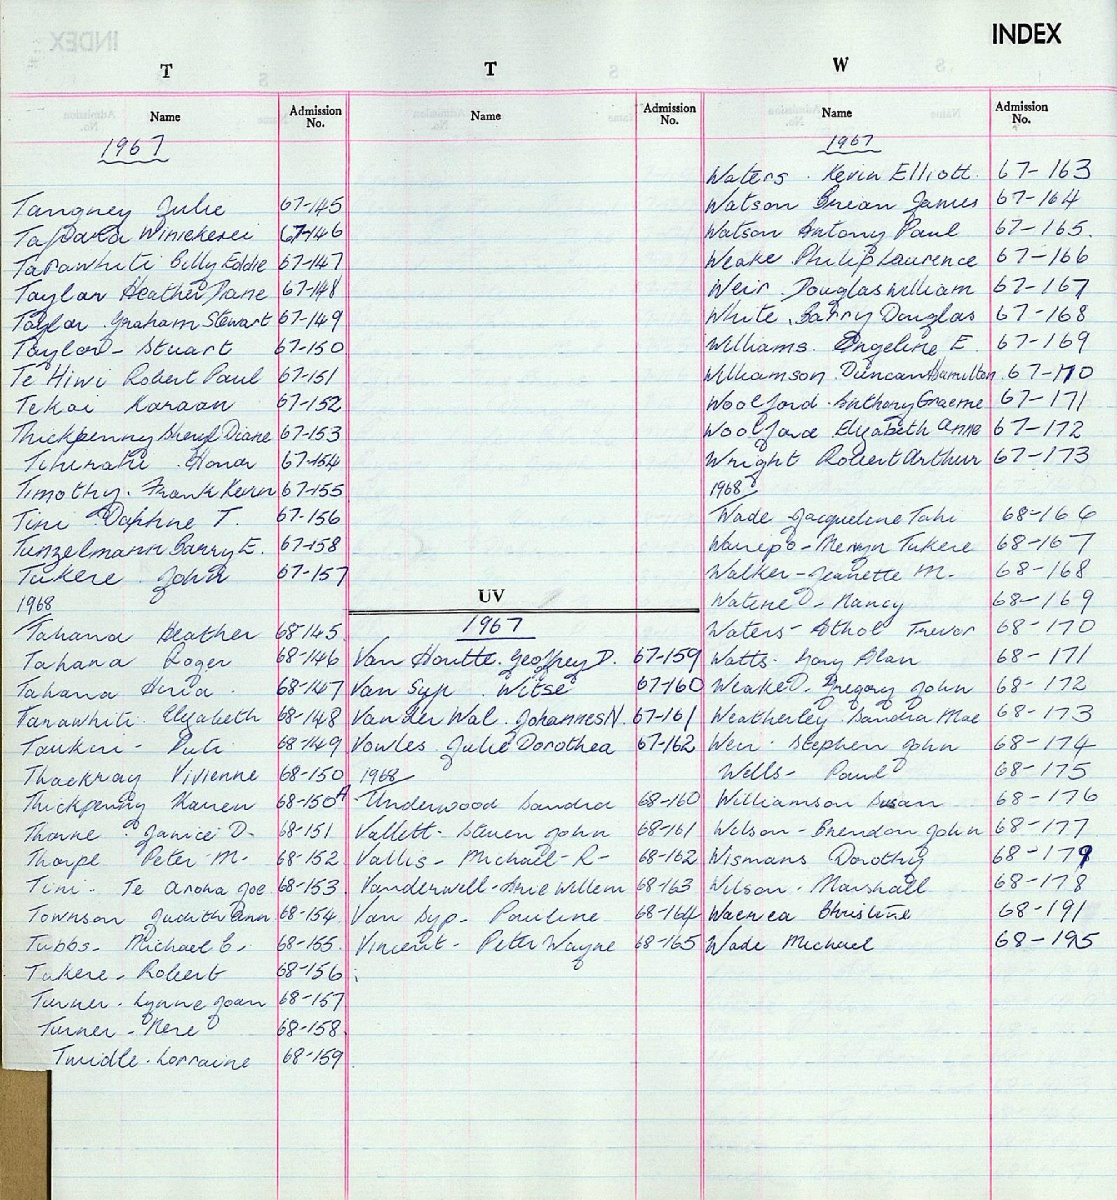 INDEX
T
Name
Admission No.
1967
Tangney Julie 67-145
Tapara Winiekerei 67-146
Tarawhiti Billy Eddie 67-147
Taylor Heather Jane 67-148
Taylor Graham Stewart 67-149
Taylor - Stuart 67-150
Te Hiwi Robert Paul 67-151
Tekoi Karaan 67-152
Thickpenny Sheryl Diane 67-153
Honor 67-154
Timothy. Frank Kevin 67-155
Tini Daphne T. 67-156
Tunzelmann Barry E. 67-158
Tukere John 67-157
1968
Tahana Heather 68-145
Tahana Roger 68-146
Tahana Huia. 68-147
Tarawhiti Elizabeth 68-148
Puti 68-149
Thackray Vivienne 68-150
Thickpenny Karen 68-150A
Thorne Janice D- 68-151
Thorpe Peter M- 68-152
Tini- Te Aroha Joe 68-153
Townson Judith Ann 68-154
Tubbs- Michael C- 68-155
Tukere - Robert 68-156
Turner - Lynne Joan 68-157
Turner - Mere 68-158
Twidle - Lorraine 68-159
T
Name
Admission No.
UV
1967
Van Houtte. Geoffrey D. 67-159
Van Syp Witse 67-160
Van der Wal. Johannes N. 67-161
Vowles. Julie Dorothea 67-162
1968
Underwood Sandra 68-160
Vallett- Steven John 68-161
Vallis- Michael- R- 68-162
Vanderwell- Arie Willem 68-163
Van Syp- Pauline 68-164
Vincent- Peter Wayne 68-165
W
Name
Admission No.
1967
Waters. Kevin Elliott. 67-163
Watson Brian James 67-164
Watson Antony Paul 67-165.
Weake Philip Laurence 67-166
Weir. Douglas William 67-167
White. Barry Douglas 67-168
Williams. Angeline E. 67-169
Williamson. Duncan Hamilton. 67-170
Woolford. Anthony Graeme 67-171
Woolford Elizabeth Anne 67-172
Wright Robert Arthur 67-173
1968
Wade Jacqueline Tahi 68-166
Waripo- Mervyn Tukere 68-167
Walker - Jeanette M- 68-168
Watene - Nancy 68-169
Waters- Athol Trevor 68-170
Watts. Gary Alan 68-171
Weake - Gregory John 68-172
Weatherley Sandra Mae 68-173
Weir- Stephen John 68-174
Wells- Paul 68-175
Williamson Susan 68-176
Wilson - Brendon John 68-177
Wismans Dorothy 68-179
Wilson- Marshall 68-178
Waerea Christine 68-191
Wade Michael 68-195